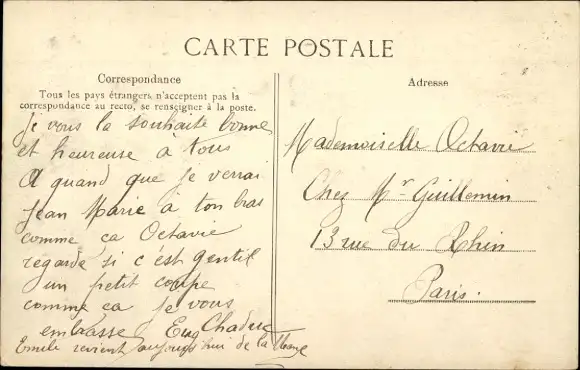 CARTE POSTALE
Correspondance
Tous les pays étrangers n'acceptent pas la
correspondance au recto, se renseigner à la poste.
Je vous la souhaite bonne
et heureuse a tous
A quand que je verrai
Jean Marie a ton bras
comme ca Octavie
regarde si c'est gentil
un petit coupe
comme ca je vous
embrasse Eug Chaduc
Emile revient aujourd'hui de la
Adresse
Mademoiselle Octavie
Chez Mr Guillemin
13 rue du Rhin
Paris.